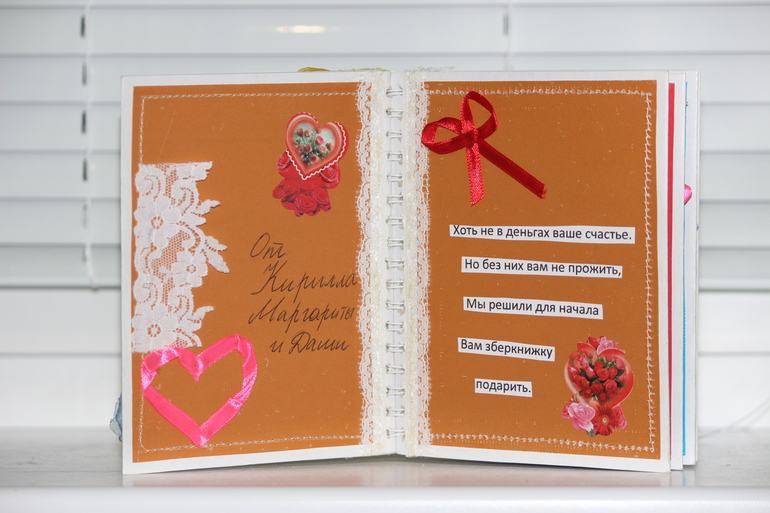 От
Кирилла
Маргариты
и Даши
Хоть не в деньгах ваше счастье.
Но без них вам не прожить,
Мы решили для начала
Вам зберкнижку
подарить.